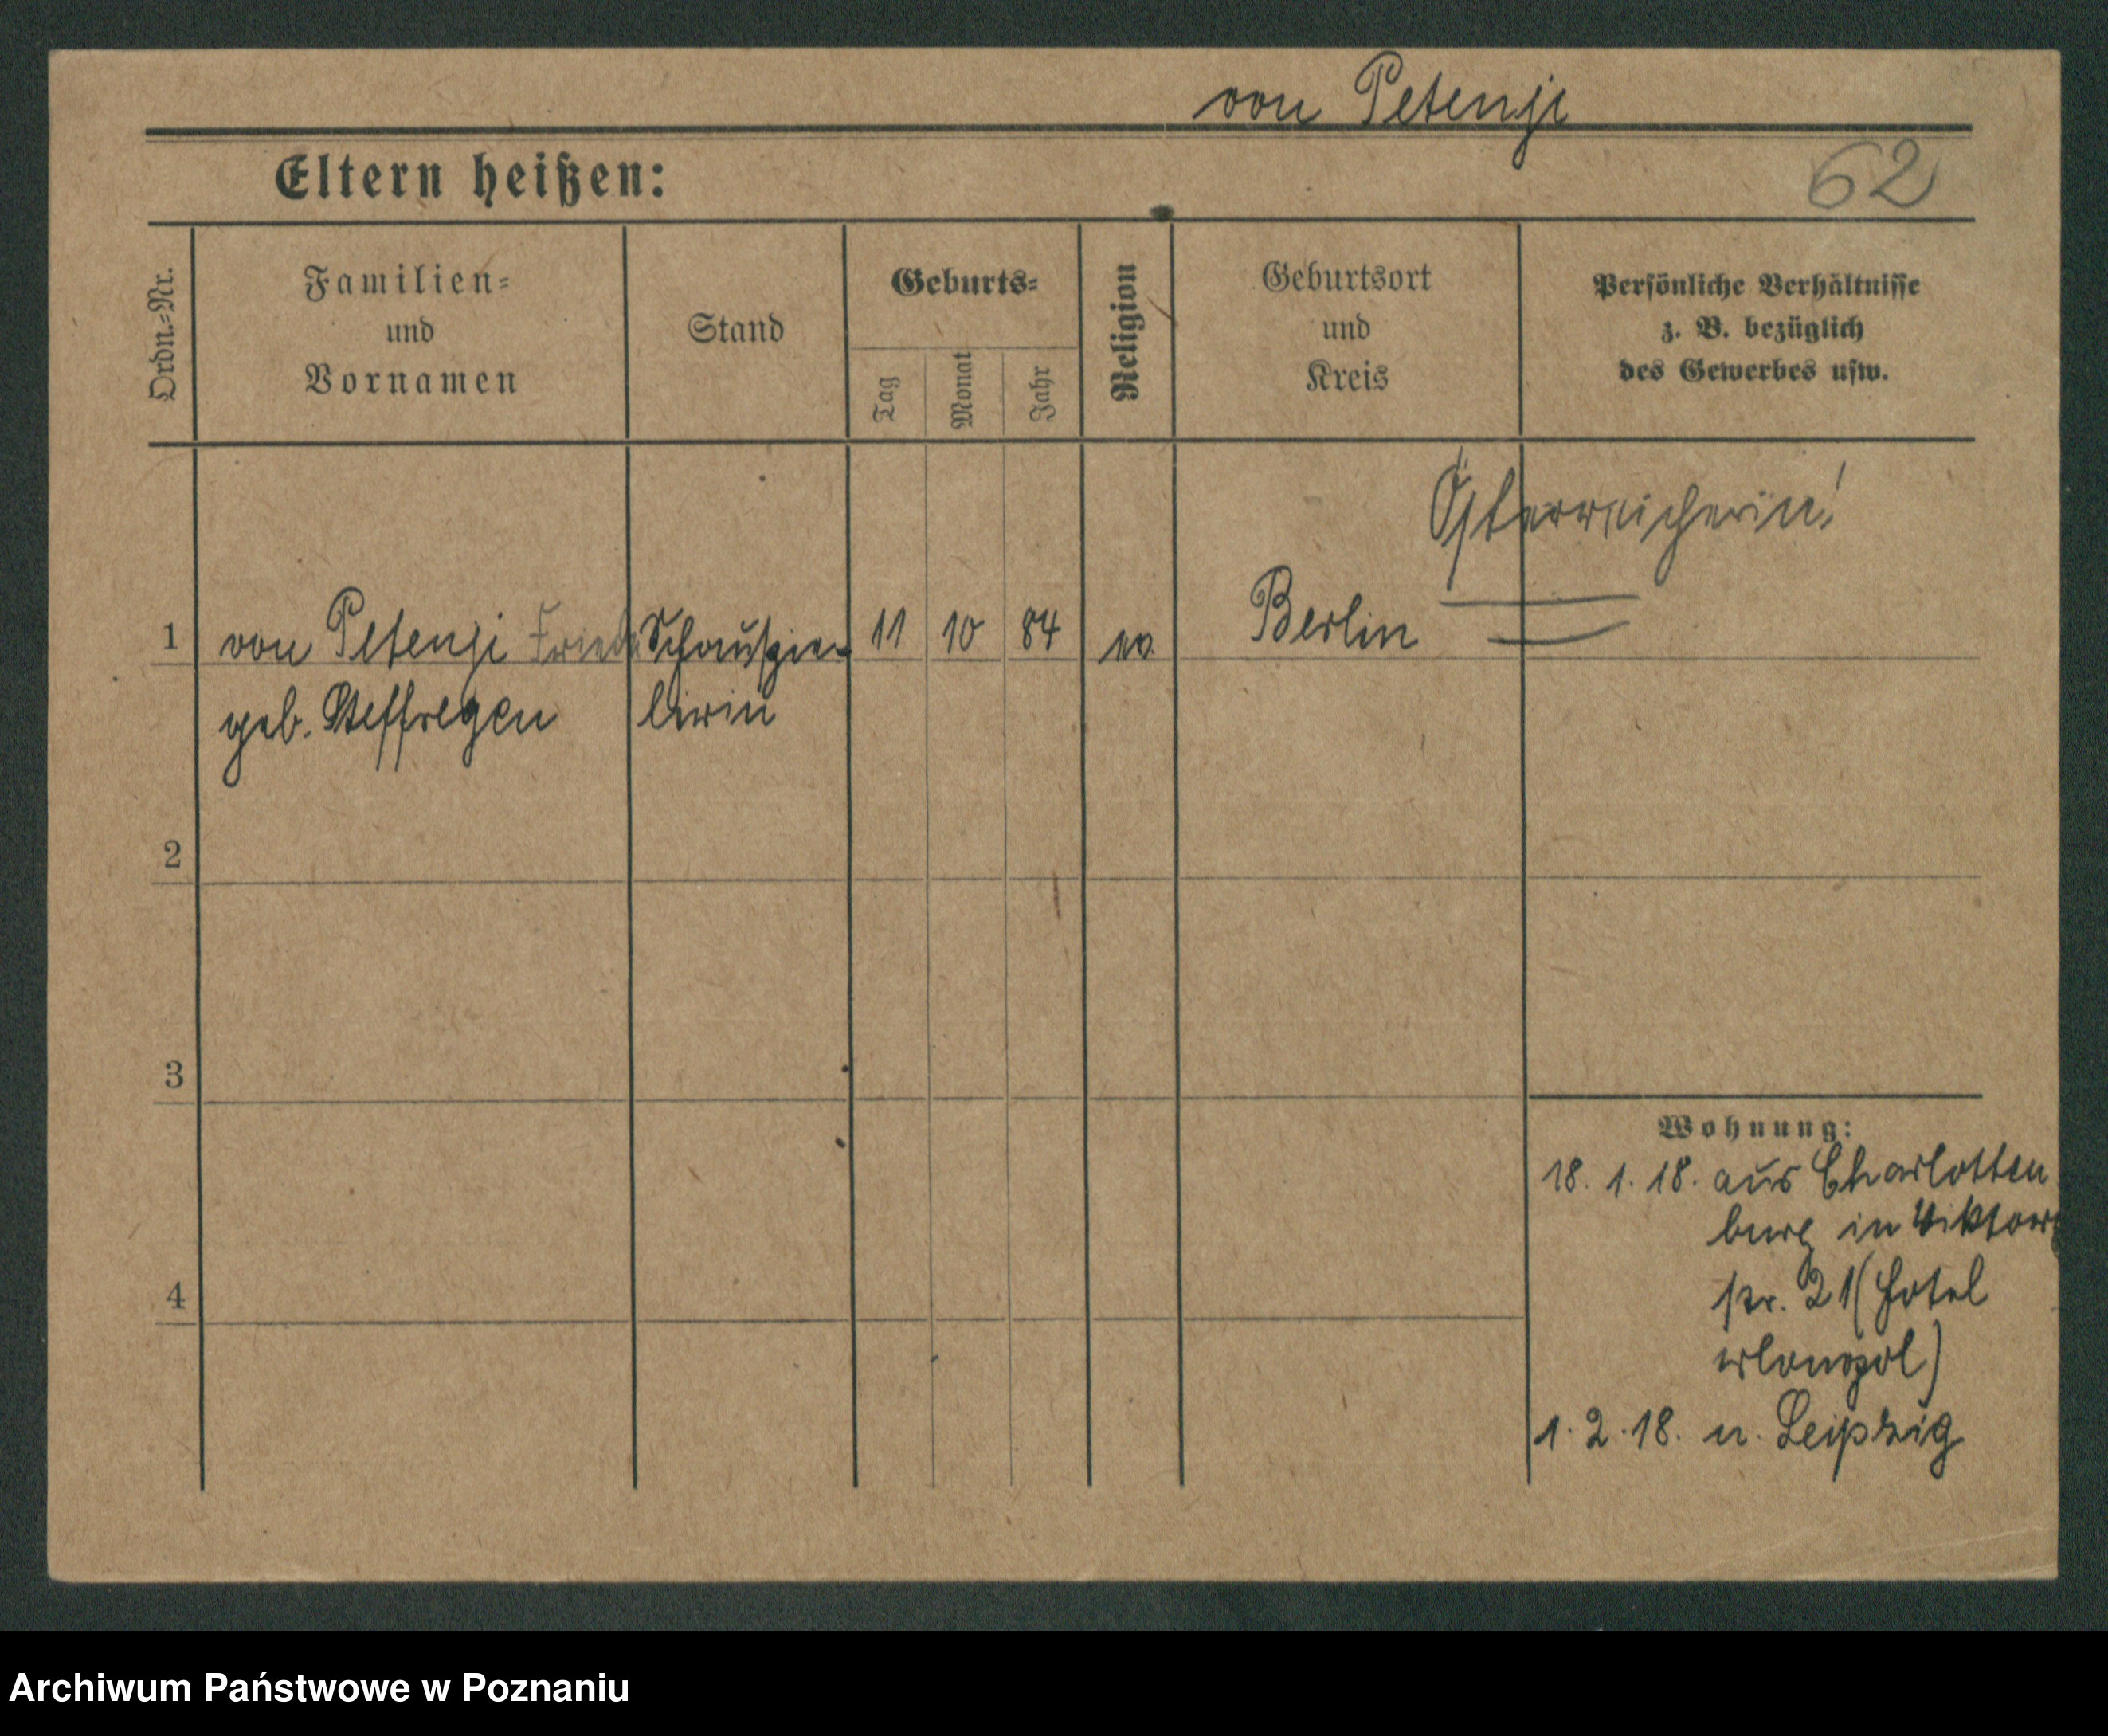 von Petenji
Eltern heißen:
62
Ordn.=Nr.
Familien=
und
Vornamen
Stand
Geburts=
Tag
Monat
Jahr
Religion
Geburtsort
und
Kreis
Persönliche Verhältnisse
z. B. bezüglich
des Gewerbes usw.
Österreicherin!
1 von Petenji Frieda Schauspie- 11 10 84 Berlin
geb. Steffregen lerin
2
3
4
Wohnung:
18. 1. 18. aus Charlotten
burg in Viktoria
str. 21 (Hotel
)
1. 2. 18. n. Leipzig
Archiwum Państwowe w Poznaniu